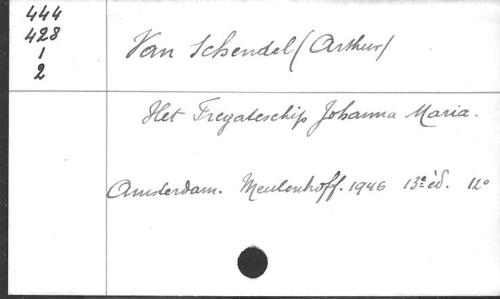 444
428
1
2
Van Schendel (Arthur)
Het Fregatschip Johanna Maria.
Amsterdam. Meulenhoff. 1946 13e éd. 12°